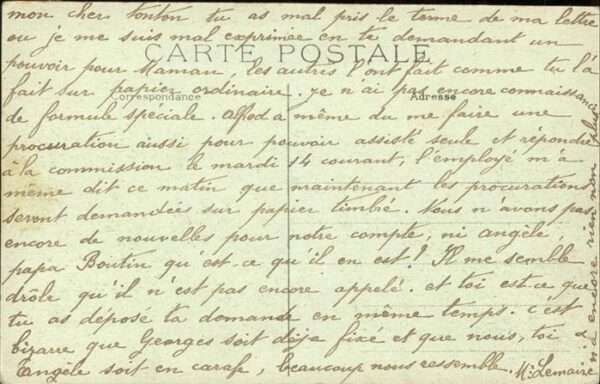 mon cher Tonton tu as mal pris le terme de ma lettre
ou je me suis mal exprimée en te demandant un
CARTE POSTALE
pouvoir pour Maman, les autres l'ont fait comme tu l'a
fait sur papier ordinaire. je n'ai pas encore connaissance
Correspondance
Adresse
de formule spéciale. Alfred a même du me faire une
procuration aussi pour pouvoir assisté seule et répondre
à la commission le mardi 14 courant, l'employé m'a
même dit ce matin que maintenant les procurations
seront demandées sur papier timbré. Nous n'avons pas
encore de nouvelles pour notre compte, ni angèle,
papa Boutin qu'est-ce qu'il en est? Il me semble
drôle qu'il n'est pas encore appelé. et toi est-ce que
tu as déposé ta demande en même temps. c'est
bizarre que Georges soit déja fixé et que nous, toi &
Angèle soit en carafe, beaucoup nous ressemble. M. Lemaire
n'a encore rien non plus